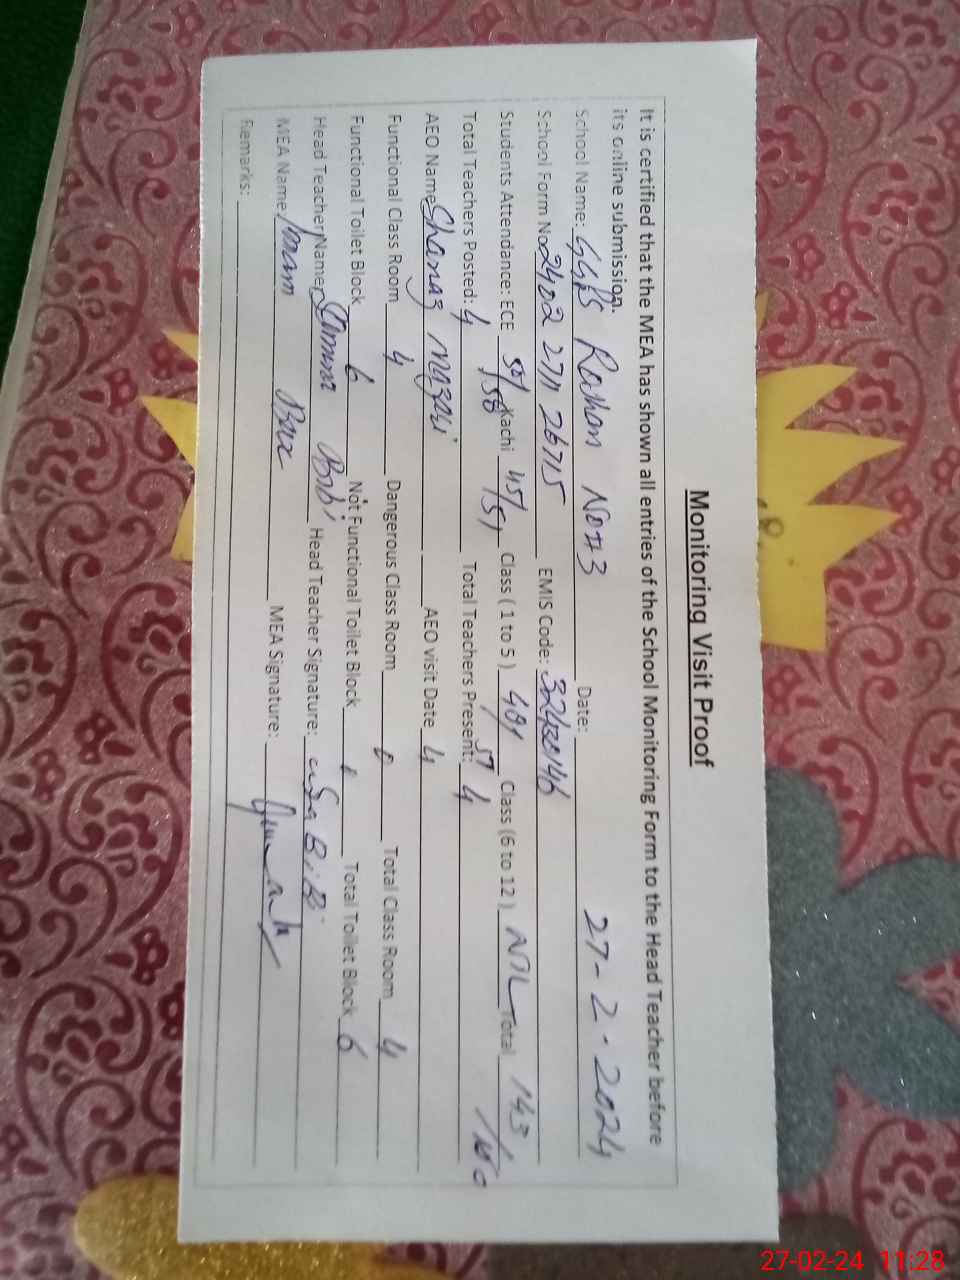 Monitoring Visit Proof
It is certified that the MEA has shown all entries of the School Monitoring Form to the Head Teacher before
its online submission.
School Name: GGPS Rohan No#3 Date: 27-2-2024
School Form No 2402 2711 26715 EMIS Code:
Students Attendance: ECE Kachi 45/51 Class ( 1 to 5 ) Class (6 to 12 ) NIL Total 143/160
Total Teachers Posted: 4 Total Teachers Present: 4
AEO Name Shanaz Mazari AEO visit Date 4
Functional Class Room 4 Dangerous Class Room Total Class Room 4
Functional Toilet Block 6 Not Functional Toilet Block Total Toilet Block 6
Head Teacher Name Bibi Head Teacher Signature:
MEA Name Imam Bux MEA Signature:
Remarks:
27-02-24 11:28